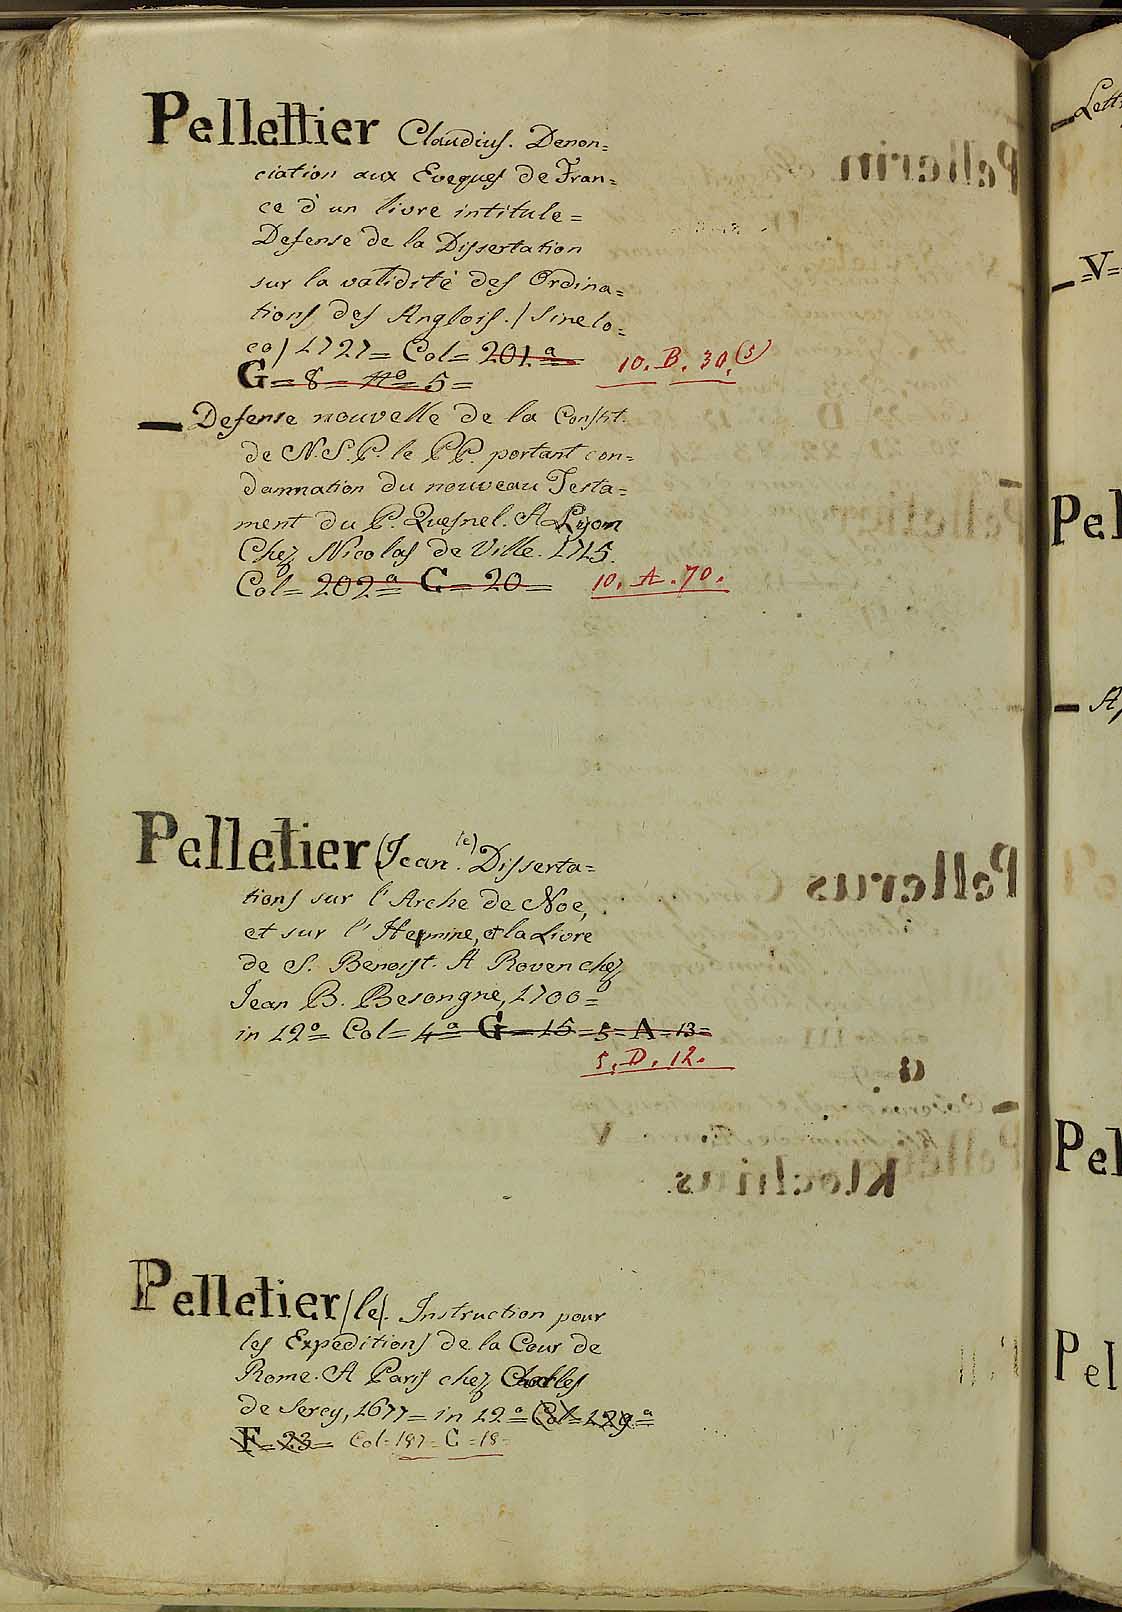 Pellettier Claudius. Denon=
ciation aux Eveques de Fran=
ce d'un livre intitule=
Defense de la Dissertation
sur la validitè des Ordina=
tions des Anglois. / sine lo=
co / 1727= Col= 201.a=
10. B. 30.(5)
G=8= No= 5=
— Defense nouvelle de la Constit.
de N.S.P. le PP. portant con=
damnation du nouveau Testa=
ment du P. Quesnel. A Lyon
Chez Nicolas de Ville. 1715.
Col= 202a= G=20=
10. A. 70.
Pelletier (Jean (le). Disserta=
tions sur l'Arche de Noe,
et sur l'Hemine, et la Livre
de S. Benoist. A Roven chez
Jean B. Besongne, 1700=
in 12o= Col= 4a= G=15=5=A=13=
5. D. 12.
Pelletier /le/. Instruction pour
les Expeditions de la Cour de
Rome. A Paris chez Charles
de Sercy, 1677= in 12o= Col=129a=
F=23= Col=187=G=18=
Lett
=V=
Pel
— A
Pel
Pel
Pellerin
Pelletier
Pellerus
Klochius.